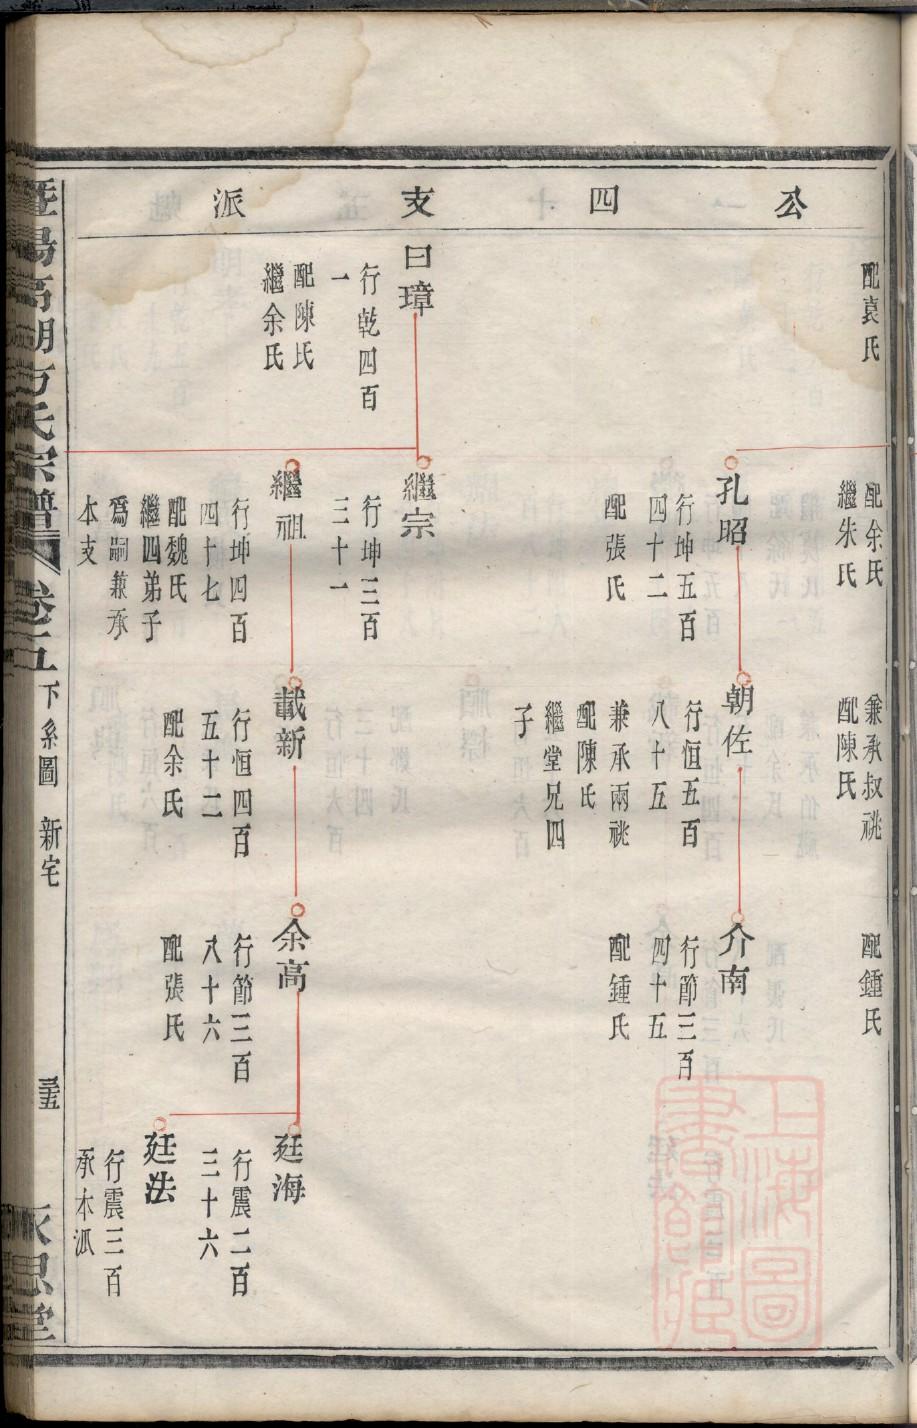 公四支派
配袁氏
曰璋
行乾四百
一
配陳氏
繼余氏
配余氏
繼朱氏
孔昭
行坤五百
四十二
配張氏
繼宗
行坤三百
三十一
繼祖
行坤四百
四十七
配魏氏
繼四弟子
爲嗣兼承
本支
兼承叔祧
配陳氏
朝佐
行恒五百
八十五
兼承兩祧
配陳氏
繼堂兄四
子
載新
行恒四百
五十二
配余氏
配鍾氏
介南
行節三百
四十五
配鍾氏
余高
行節三百
八十六
配張氏
廷海
行震二百
三十六
廷法
行震三百
承本派
暨陽高湖方氏宗譜
卷二五
下系圖
新宅
永思堂
上海圖
書館藏